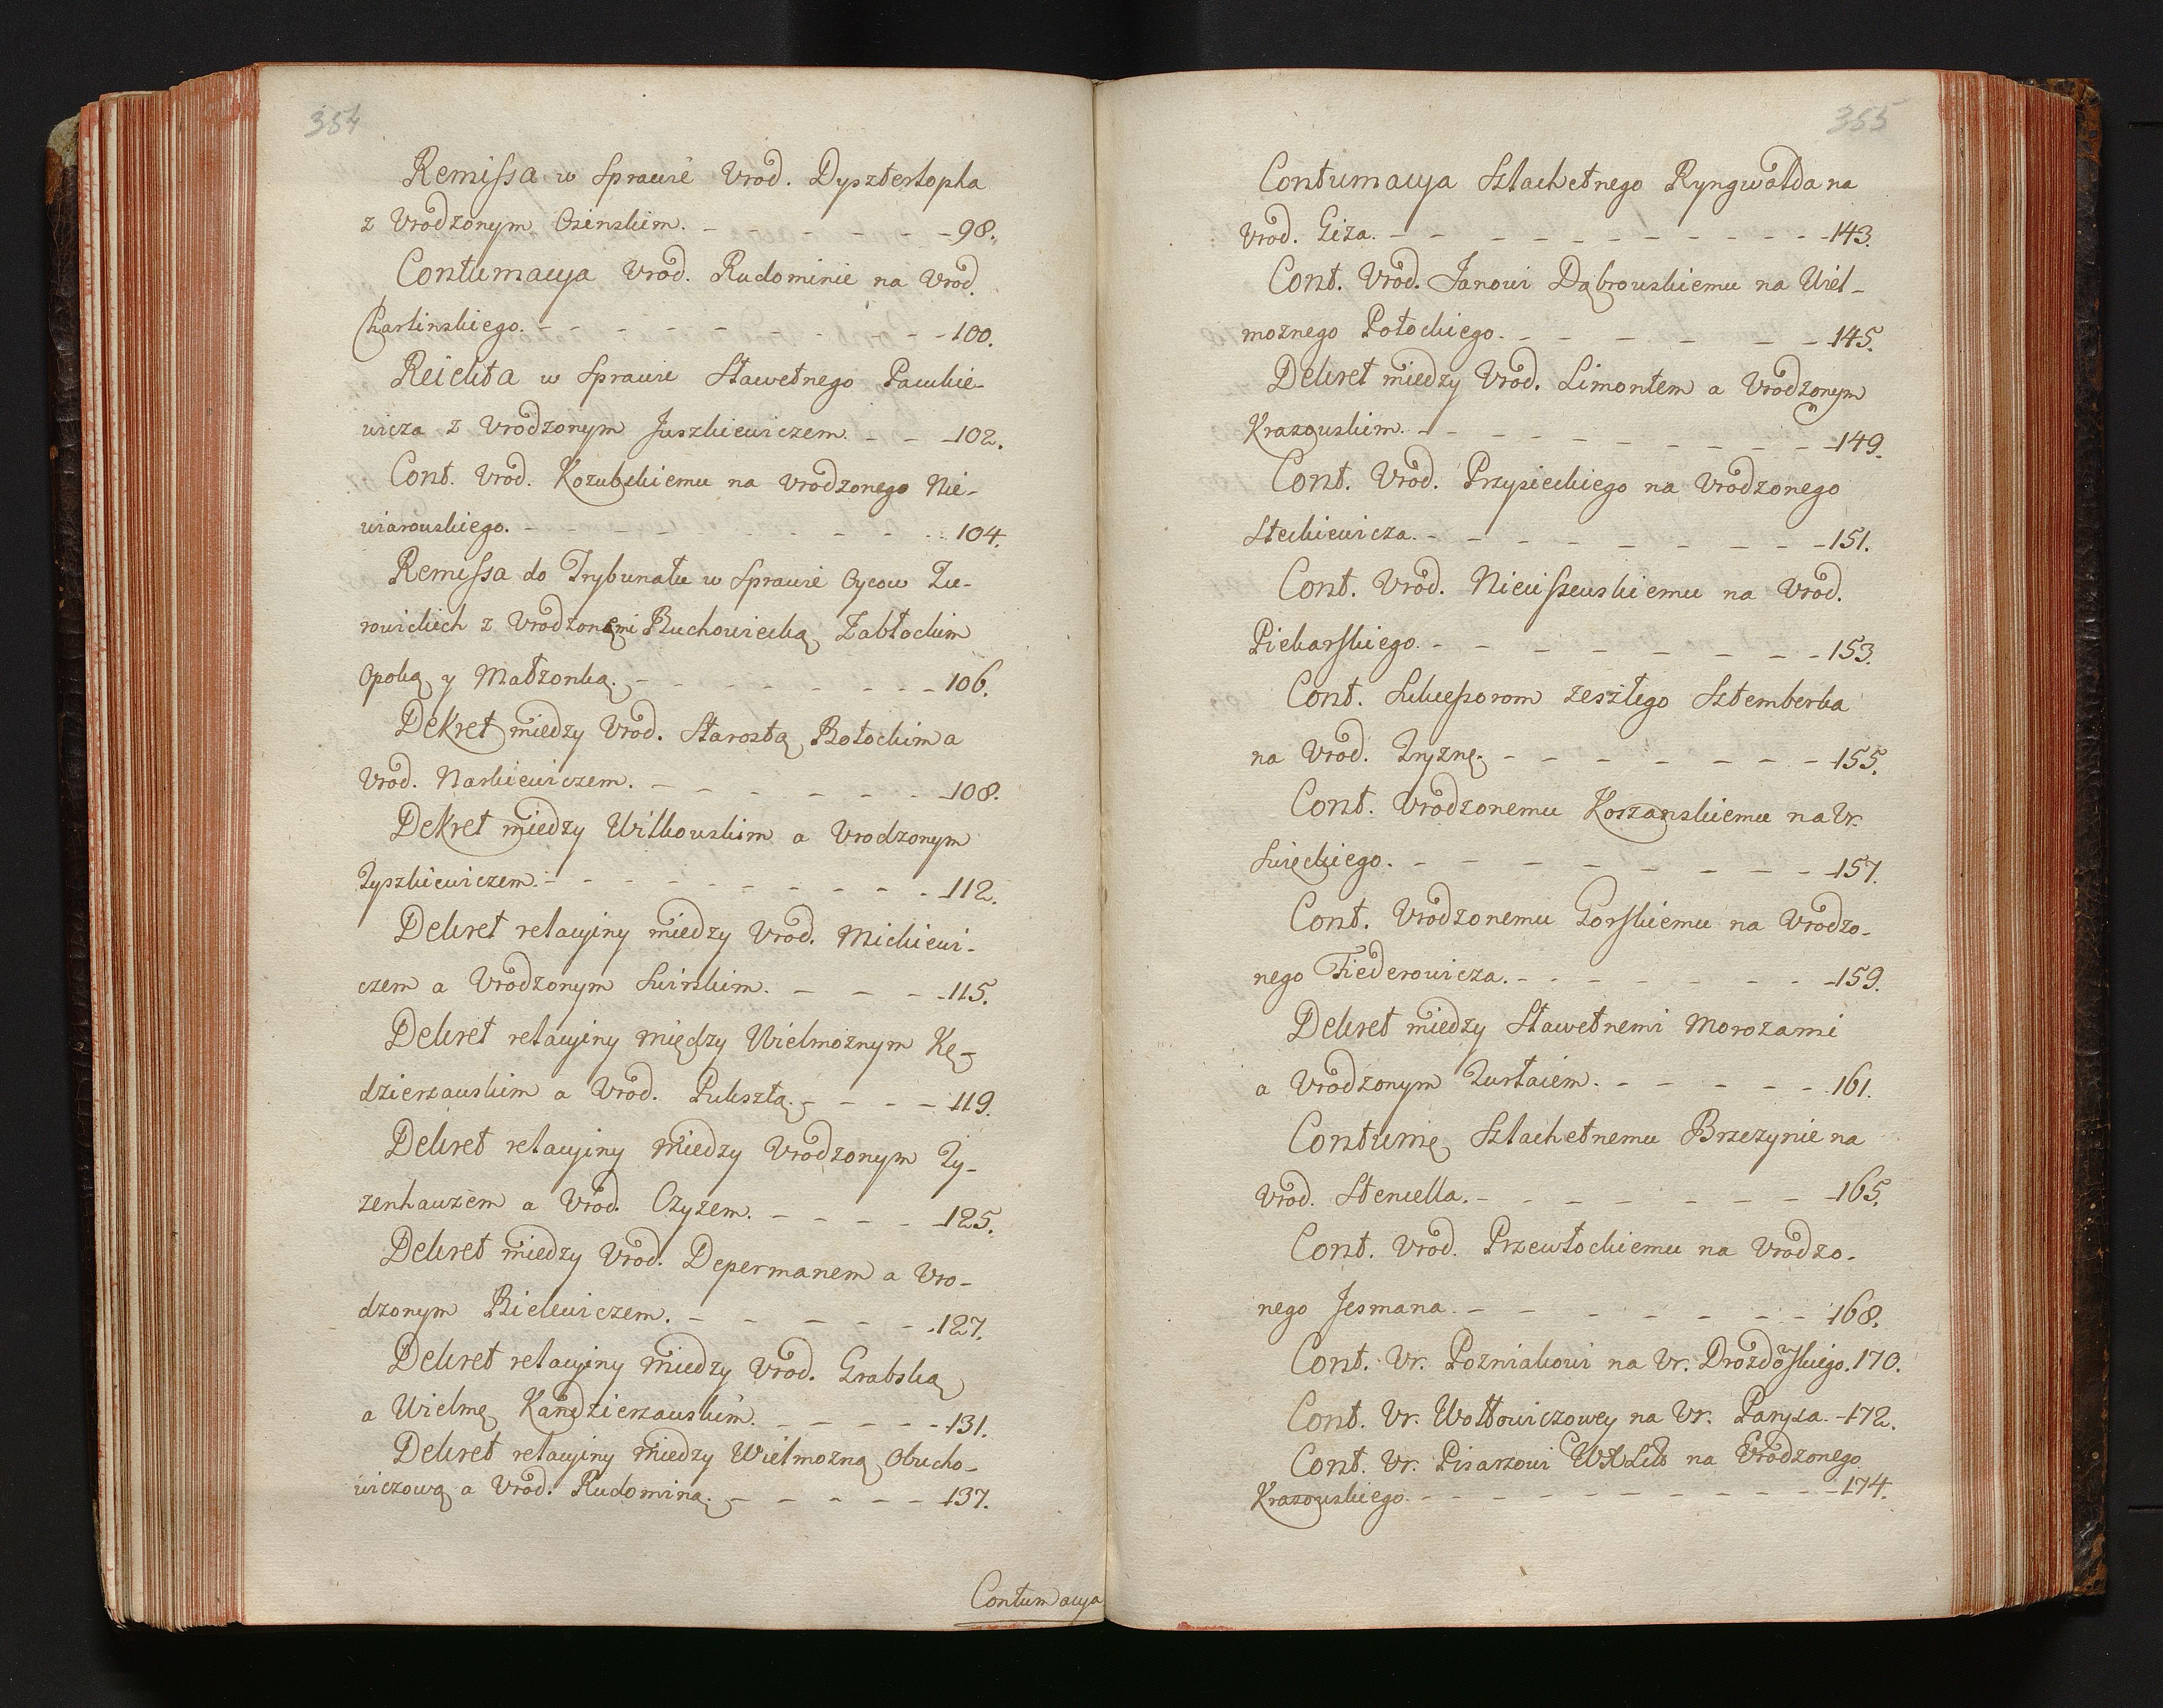 354
Remissa w Sprawie Urod. Dysztertopha
z Urodzonym Osinskim. - - - - - - - 98.
Contumacya Urod. Rudominie na Urod.
Charlinskiego. - - - - - - - - - 100.
Reiekta w Sprawie Sławetnego Pawkie-
wicza z Urodzonym Juszkiewiczem. - - - 102.
Cont. Urod. Kozubskiemu na Urodzonego Nie-
wiarowskiego. - - - - - - - - - 104.
Remissa do Trybunału w Sprawie Oycow Żu-
rowickich z Urodzonemi Buchowiecką Zabłockim
Opoką y Małżonką. - - - - - - - - 106.
Dekret między Urod. Starostą Bołockim a
Urod. Narkiewiczem. - - - - - - - 108.
Dekret między Wilkowskim a Urodzonym
Tyszkiewiczem. - - - - - - - - - 112.
Dekret relacyiny między Urod. Mickiewi-
czem a Urodzonym Swirskim. - - - - 115.
Dekret relacyiny między Wielmoznym Kę-
dzierzawskim a Urod. Puksztą. - - - - 119.
Dekret relacyiny między Urodzonym Ty-
zenhauzem a Urod. Czyzem. - - - - - 125.
Dekret między Urod. Depermanem a Uro-
dzonym Bielewiczem. - - - - - - 127.
Dekret relacyiny między Urod. Grabską
a Wielmę Kandzierzawskim. - - - - - 131.
Dekret relacyiny między Wielmozną Obucho-
wiczową a Urod. Rudominą. - - - - - 137.
Contumacya
355
Contumacya Szlachetnego Ryngwalda na
Urod. Giza. - - - - - - - - - - 143.
Cont. Urod. Janowi Dąbrowskiemu na Wiel-
moznego Potockiego. - - - - - - - 145.
Dekret między Urod. Limontem a Urodzonym
Krasowskim. - - - - - - - - - 149.
Cont. Urod. Przysieckiego na Urodzonego
Steckiewicza. - - - - - - - - - 151.
Cont. Urod. Niewiszewskiemu na Urod.
Piekarskiego. - - - - - - - - 153.
Cont. Sukcessorom zeszłego Sztemberka
na Urod. Tryznę. - - - - - - - - 155.
Cont. Urodzonemu Korzanskiemu na Ur.
Swięckiego. - - - - - - - - - 157.
Cont. Urodzonemu Gorskiemu na Urodzo-
nego Fiederowicza. - - - - - - - 159.
Dekret między Sławetnemi Morozami
a Urodzonym Turłaiem. - - - - - - 161.
Contumę Szlachetnemu Brzezynie na
Urod. Stencella. - - - - - - - - 165.
Cont. Urod. Przewłockiemu na Urodzo-
nego Jesmana. - - - - - - - - 168.
Cont. Ur. Pozniakowi na Ur. Drozdoskiego. 170.
Cont. Ur. Wołłowiczowey na Ur. Parysa. - 172.
Cont. Ur. Pisarzowi WXLitt na Urodzonego
Krasowskiego. - - - - - - - - - 174.